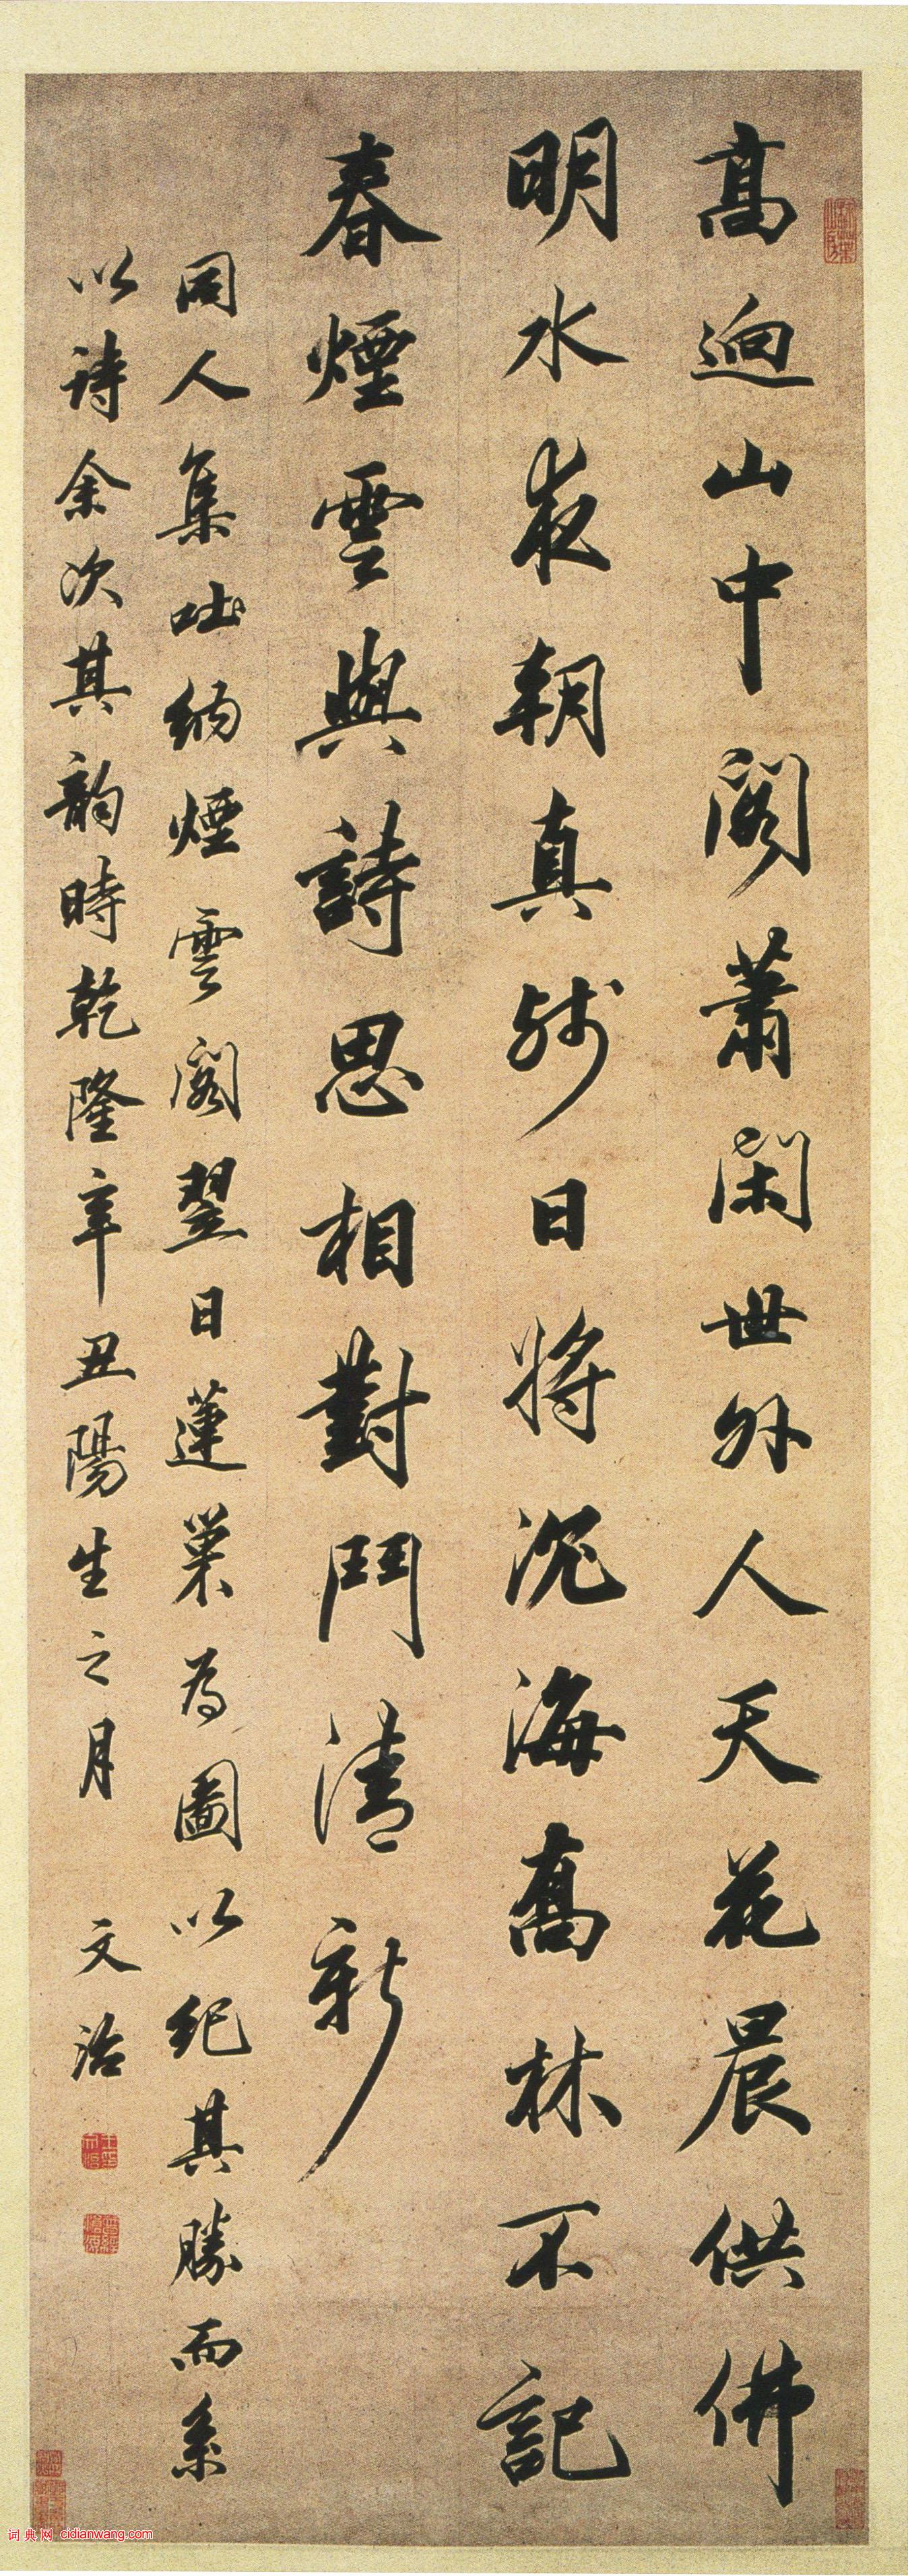 高迥山中閣蕭閑世外人天花晨供佛
明水夜朝真殘日將沉海高林不記
春煙雲與詩思相對鬥清新
同人集吐納煙雲閣翌日蓮巢為圖以紀其勝而系
以詩余次其韵時乾隆辛丑陽生之月 文治
词典网 cidianwang.com